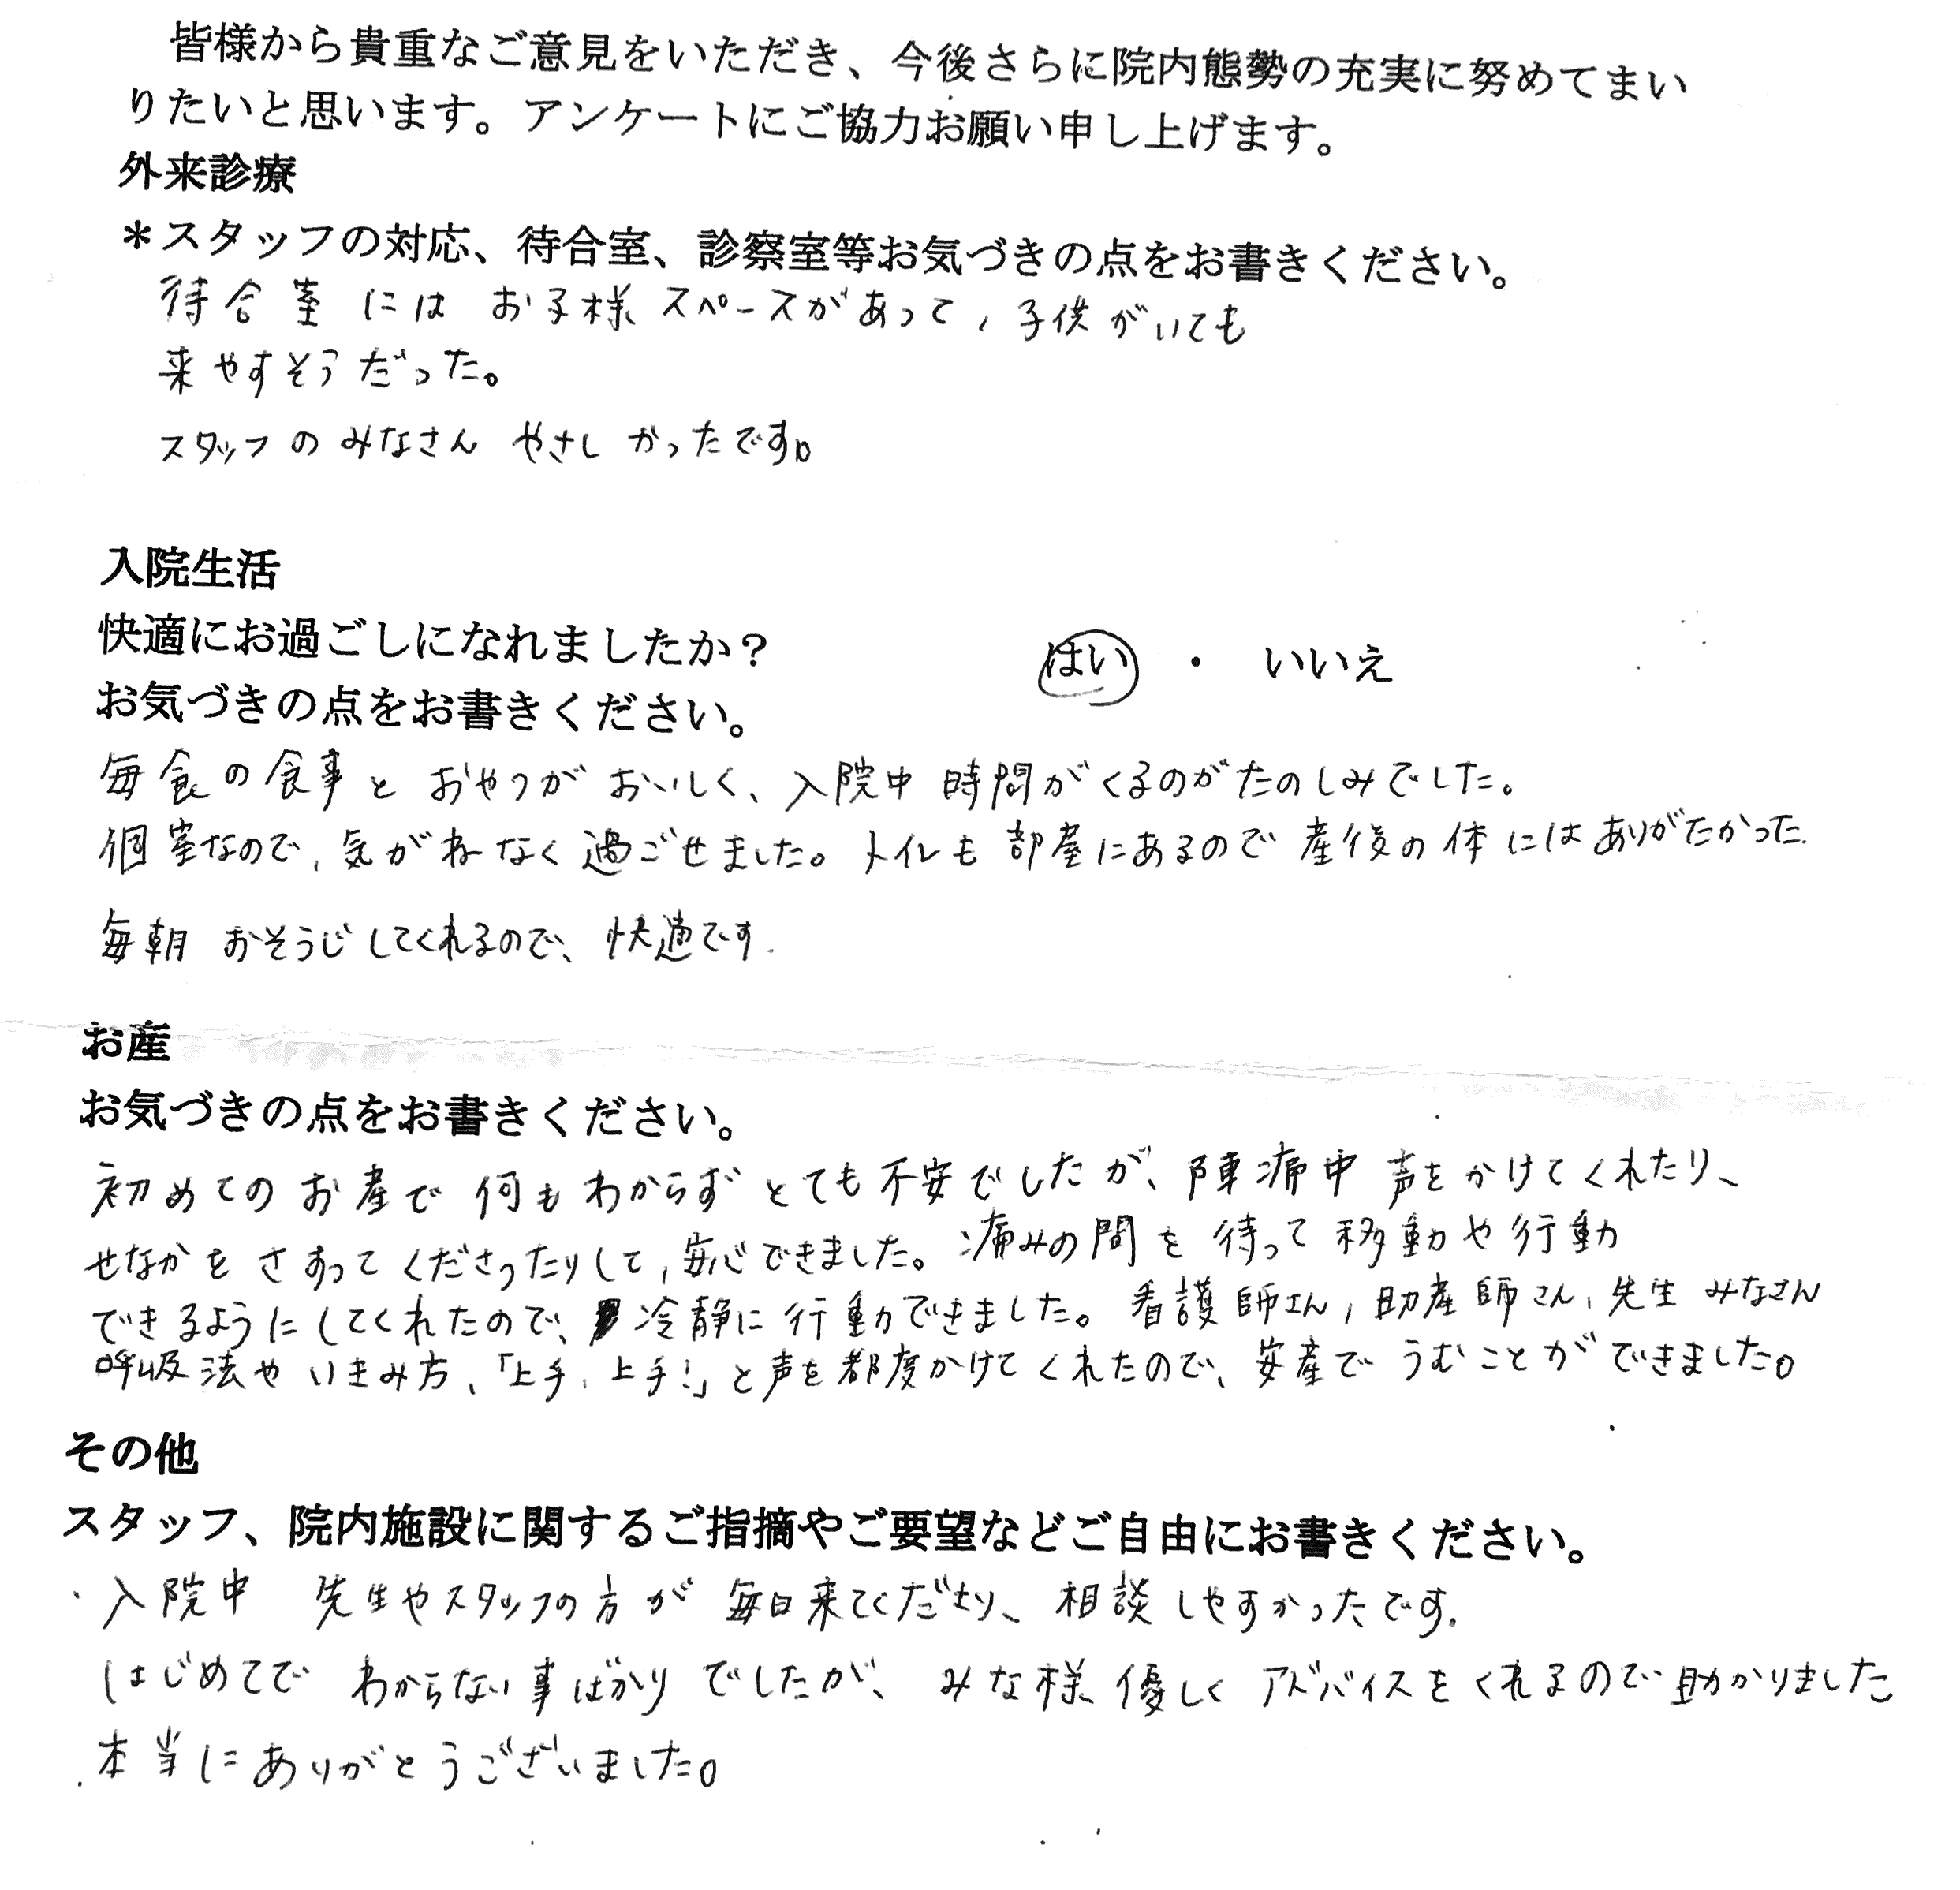 皆様から貴重なご意見をいただき、今後さらに院内態勢の充実に努めてまい
りたいと思います。アンケートにご協力お願い申し上げます。
外来診療
＊スタッフの対応、待合室、診察室等お気づきの点をお書きください。
待合室にはお子様スペースがあって、子供がいても
来やすそうだった。
スタッフのみなさんやさしかったです。
入院生活
快適にお過ごしになれましたか？ はい ・ いいえ
お気づきの点をお書きください。
毎食の食事とおやつがおいしく、入院中時間がくるのがたのしみでした。
個室なので、気がねなく過ごせました。トイレも部屋にあるので産後の体にはありがたかった.
毎朝おそうじしてくれるので、快適です.
お産
お気づきの点をお書きください。
初めてのお産で何もわからずとても不安でしたが、陣痛中声をかけてくれたり、
せなかをさすってくださったりして、安心できました。痛みの間を待って移動や行動
できるようにしてくれたので、冷静に行動できました。看護師さん、助産師さん、先生みなさん
呼吸法やいきみ方、「上手、上手！」と声を都度かけてくれたので、安産でうむことができました。
その他
スタッフ、院内施設に関するご指摘やご要望などご自由にお書きください。
・入院中 先生やスタッフの方が毎日来てくださり、相談しやすかったです.
はじめてでわからない事ばかりでしたが、みな様優しくアドバイスをくれるので助かりました
本当にありがとうございました。